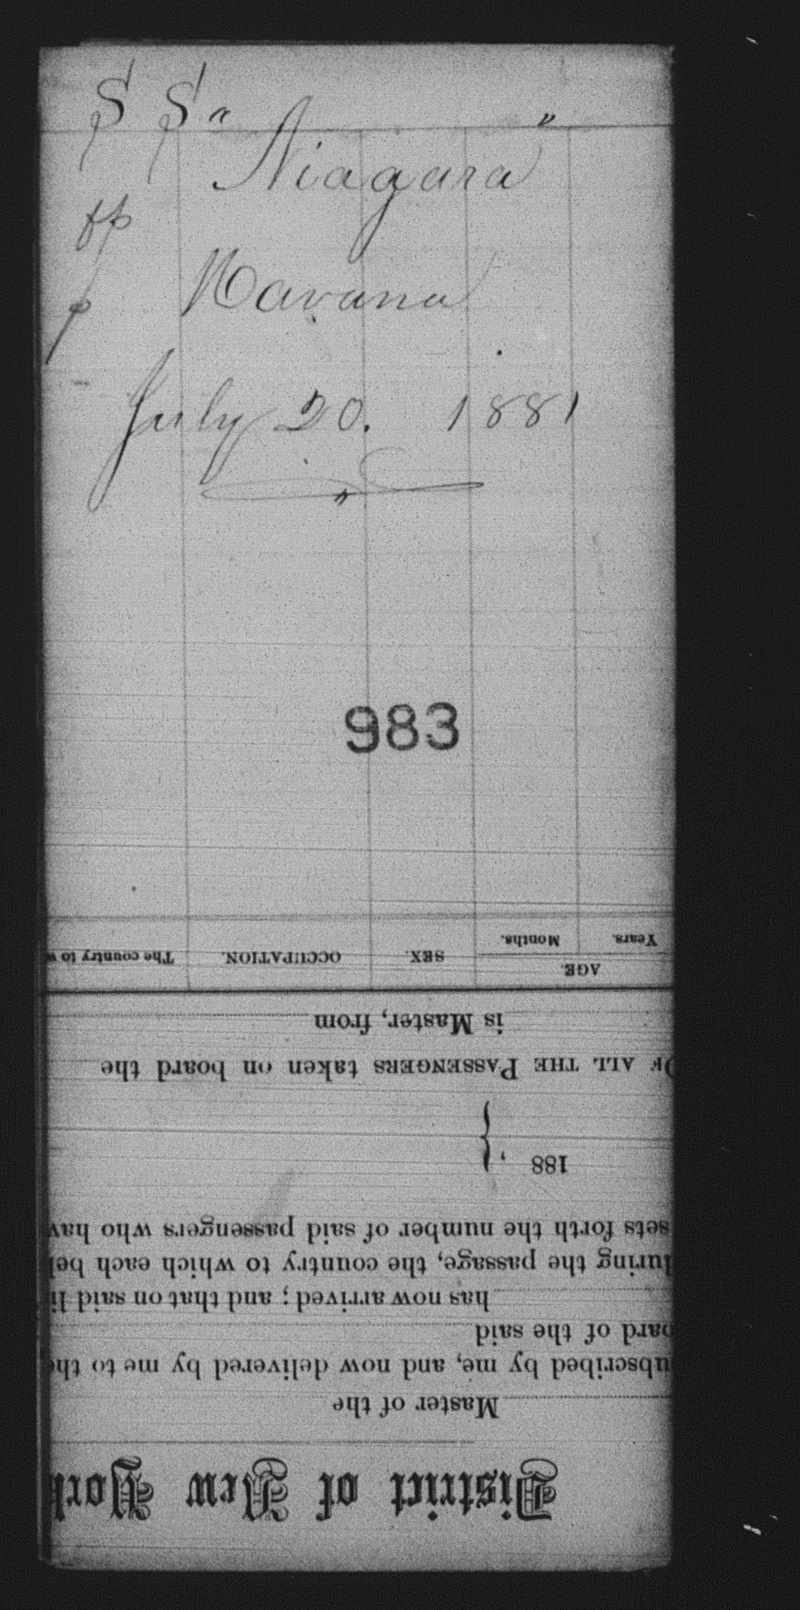 SS "Niagara"
Havana
July 20. 1881
"
983
District of New York
Master of the
ubscribed by me, and now delivered by me to the
oard of the said
has now arrived; and that on said li
during the passage, the country to which each bel
sets forth the number of said passengers who hav
188 , }
OF ALL THE PASSENGERS taken on board the
is Master, from
AGE.
Years. Months. SEX. OCCUPATION. The country to w